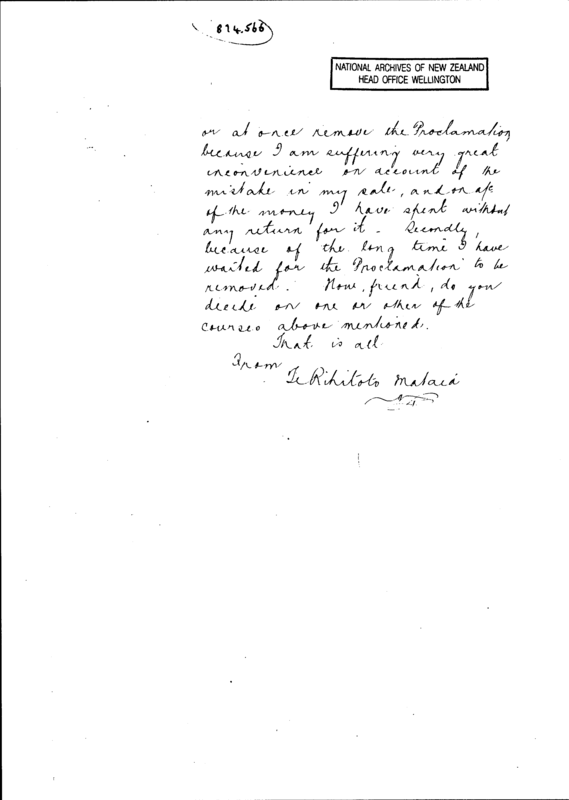 874.566
NATIONAL ARCHIVES OF NEW ZEALAND
HEAD OFFICE WELLINGTON
or at once remove the Proclamation
because I am suffering very great
inconvenience on account of the
mistake in my sale, and on a/c
of the money I have spent without
any return for it. Secondly,
because of the long time I have
waited for the Proclamation to be
removed. Now, friend, do you
decide on one or other of the
courses above mentioned.
That is all
From
Te Rihitoto Mataia